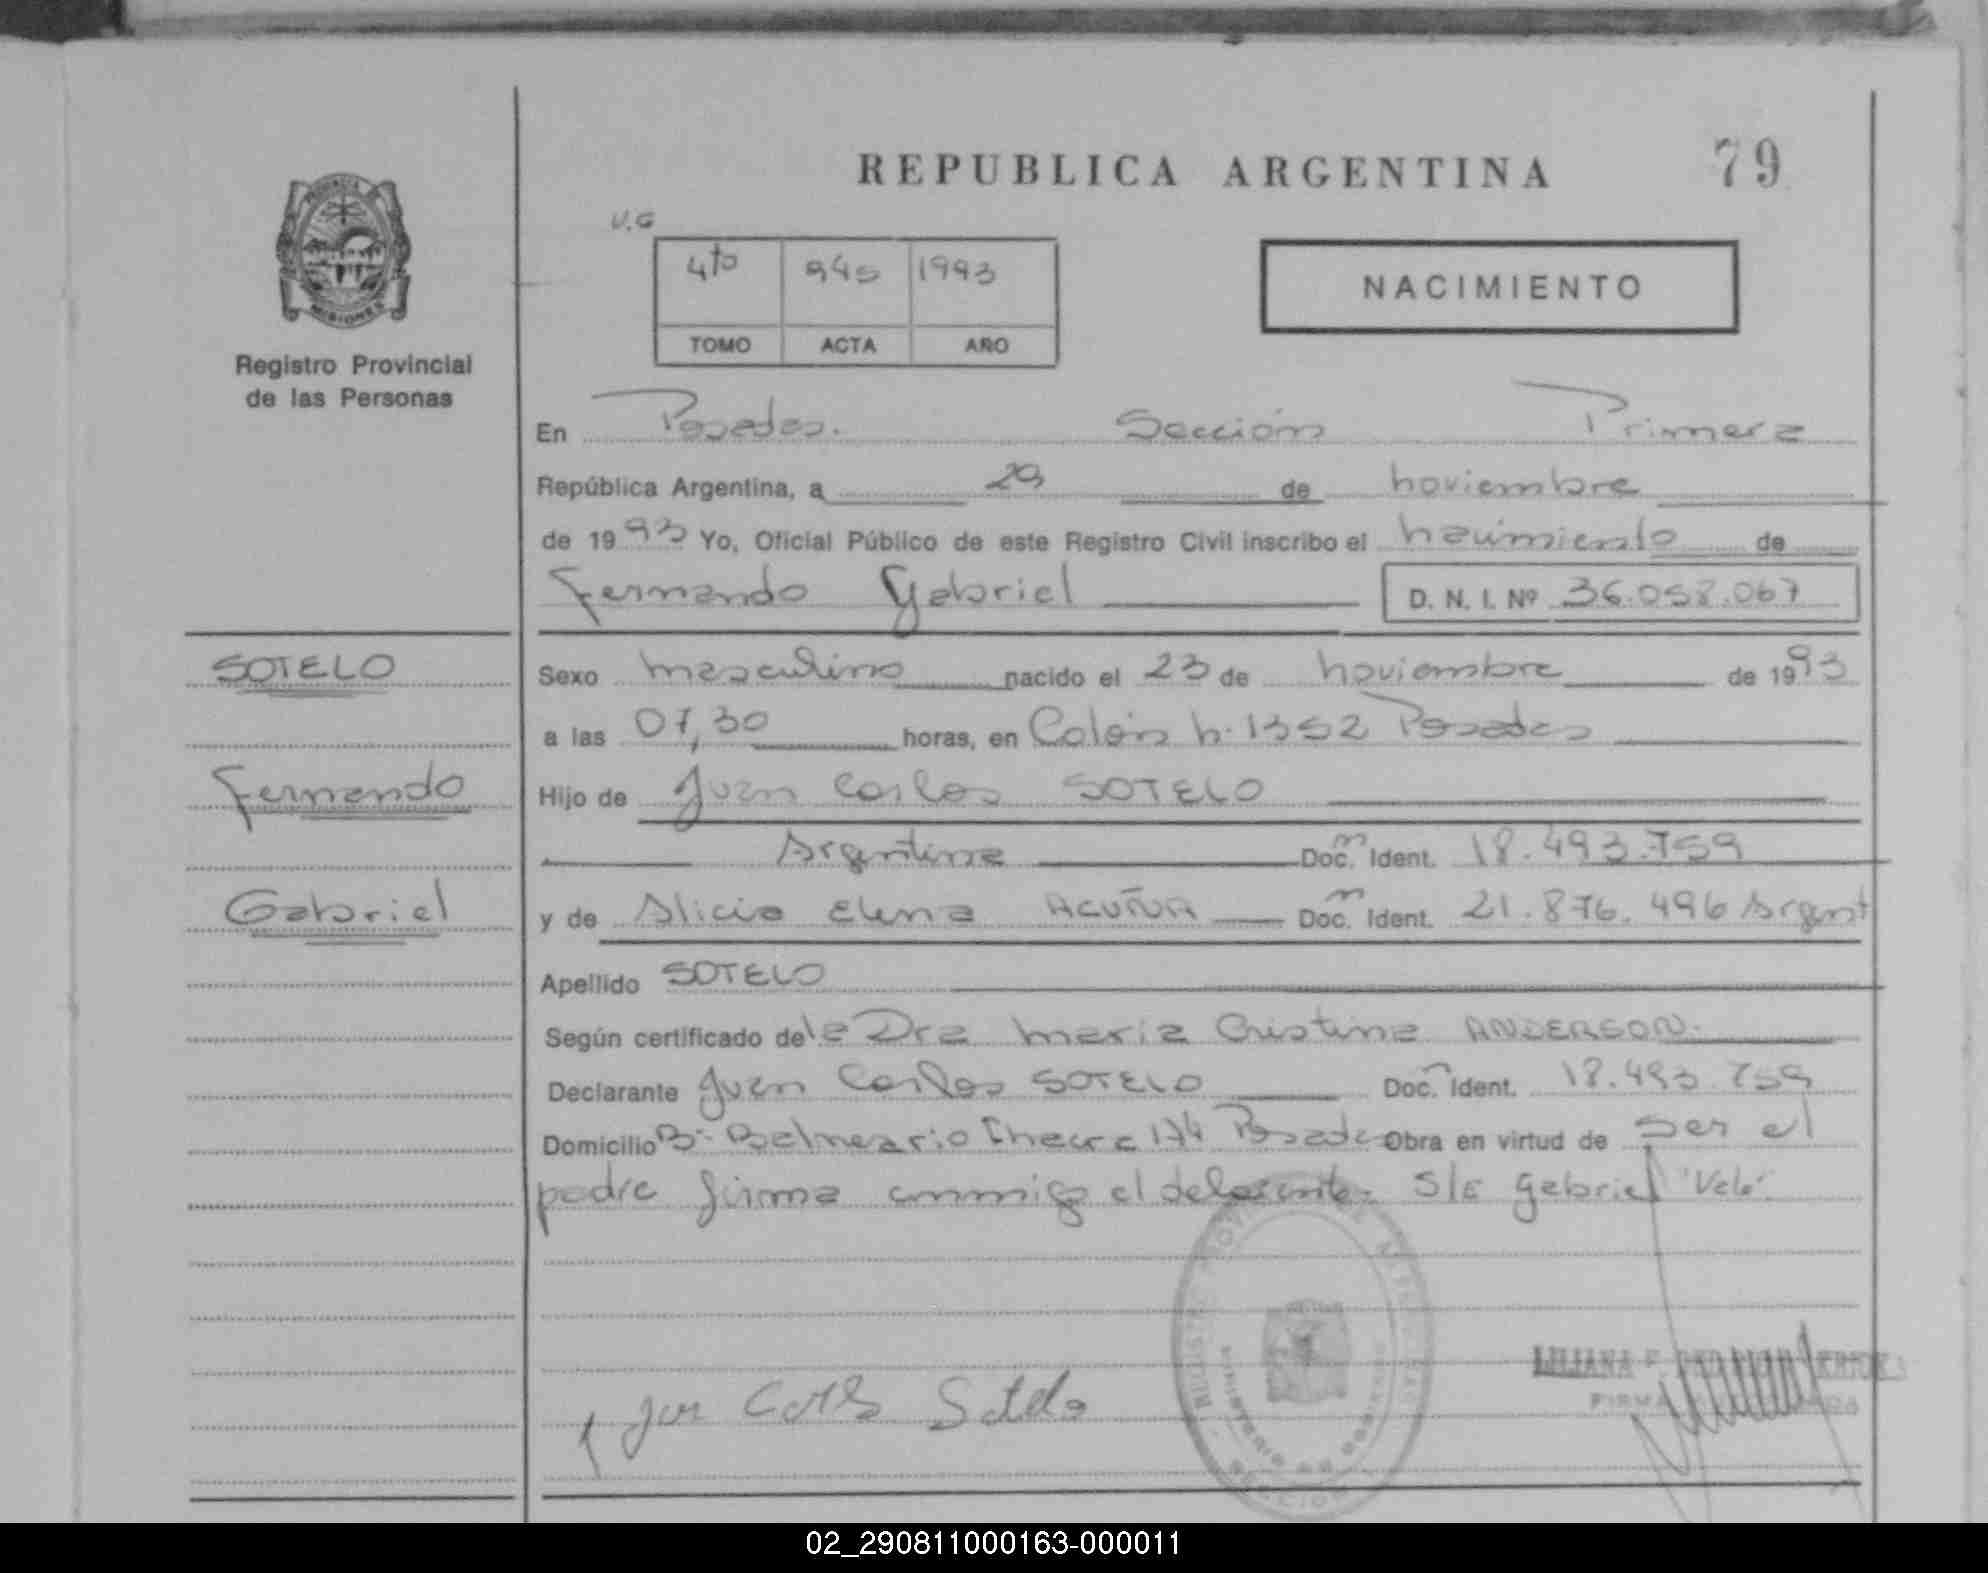 REPUBLICA ARGENTINA 79
PROVINCIA
MISIONES
Registro Provincial
de las Personas
V.G
4to 945 1993
TOMO ACTA AÑO
NACIMIENTO
En Posadas. Sección Primera
República Argentina, a 29 de noviembre
de 1993 Yo, Oficial Público de este Registro Civil inscribo el nacimiento de
Fernando Gabriel D. N. I. Nº 36.058.067
SOTELO
Fernando
Gabriel
Sexo masculino nacido el 23 de noviembre de 1993
a las 07,30 horas, en Colón n. 1352 Posadas
Hijo de Juan Carlos SOTELO
Argentina Doc. Ident. 18.493.759
y de Alicia Elena ACUÑA Doc. Ident. 21.876.496 Argent
Apellido SOTELO
Según certificado de la Dra Maria Cristina ANDERSON.
Declarante Juan Carlos SOTELO Doc. Ident. 18.493.759
Domicilio Bº Balneario 174 Posadas Obra en virtud de ser el
padre firma conmigo el declarante. S/E Gabriel "Vale".
Juan Carlos Sotelo
REGISTRO PROVINCIAL DE LAS PERSONAS
MINISTERIO DE GOBIERNO
SECCION
LILIANA F.
FIRMA
02_290811000163-000011